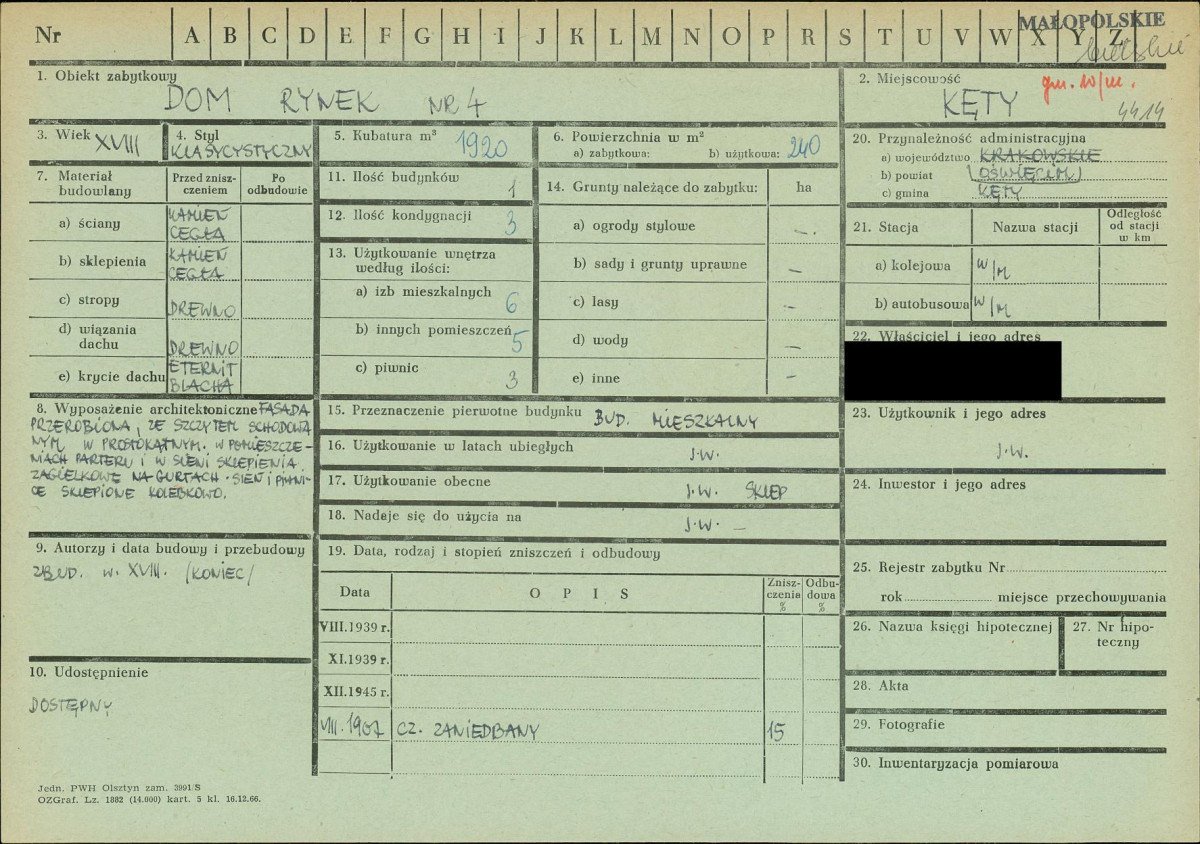 Nr A B C D E F G H I J K L M N O P R S T U V W X Y Z
MAŁOPOLSKIE
bielskie
1. Obiekt zabytkowy
DOM RYNEK NR 4
2. Miejscowość
gm. w/m.
KĘTY
4414
3. Wiek XVIII
4. Styl
KLASYCYSTYCZNY
5. Kubatura m³
1920
6. Powierzchnia w m²
a) zabytkowa: b) użytkowa: 240
20. Przynależność administracyjna
a) województwo KRAKOWSKIE
b) powiat (OŚWIĘCIM)
c) gmina KĘTY
7. Materiał budowlany
Przed zniszczeniem
Po odbudowie
a) ściany KAMIEŃ CEGŁA
b) sklepienia KAMIEŃ CEGŁA
c) stropy DREWNO
d) wiązania dachu DREWNO
e) krycie dachu ETERNIT BLACHA
11. Ilość budynków 1
12. Ilość kondygnacji 3
13. Użytkowanie wnętrza według ilości:
a) izb mieszkalnych 6
b) innych pomieszczeń 5
c) piwnic 3
14. Grunty należące do zabytku: ha
a) ogrody stylowe —.
b) sady i grunty uprawne —
c) lasy —
d) wody —
e) inne —
21. Stacja Nazwa stacji Odległość od stacji w km
a) kolejowa W/M
b) autobusowa W/M
22. Właściciel i jego adres
8. Wyposażenie architektoniczne FASADA
PRZEROBIONA, ZE SZCZYTEM SCHODOWA
NYM W PROSTOKĄTNYM. W POMIESZCZE-
NIACH PARTERU I W SIENI SKLEPIENIA
ŻAGIELKOWE NA GURTACH. SIEŃ I PIWNI-
CE SKLEPIONE KOLEBKOWO.
15. Przeznaczenie pierwotne budynku BUD. MIESZKALNY
16. Użytkowanie w latach ubiegłych J.W.
17. Użytkowanie obecne J.W. SKLEP
18. Nadaje się do użycia na J.W. —
23. Użytkownik i jego adres
J.W.
24. Inwestor i jego adres
9. Autorzy i data budowy i przebudowy
ZBUD. W. XVIII. /KONIEC/
19. Data, rodzaj i stopień zniszczeń i odbudowy
Data OPIS Zniszczenia % Odbudowa %
VIII.1939 r.
XI.1939 r.
XII.1945 r.
VIII.1967 CZ. ZANIEDBANY 15
25. Rejestr zabytku Nr
rok miejsce przechowywania
26. Nazwa księgi hipotecznej
27. Nr hipoteczny
10. Udostępnienie
DOSTĘPNY
28. Akta
29. Fotografie
30. Inwentaryzacja pomiarowa
Jedn. PWH Olsztyn zam. 3991/S
OZGraf. Lz. 1882 (14.000) kart. 5 kl. 16.12.66.